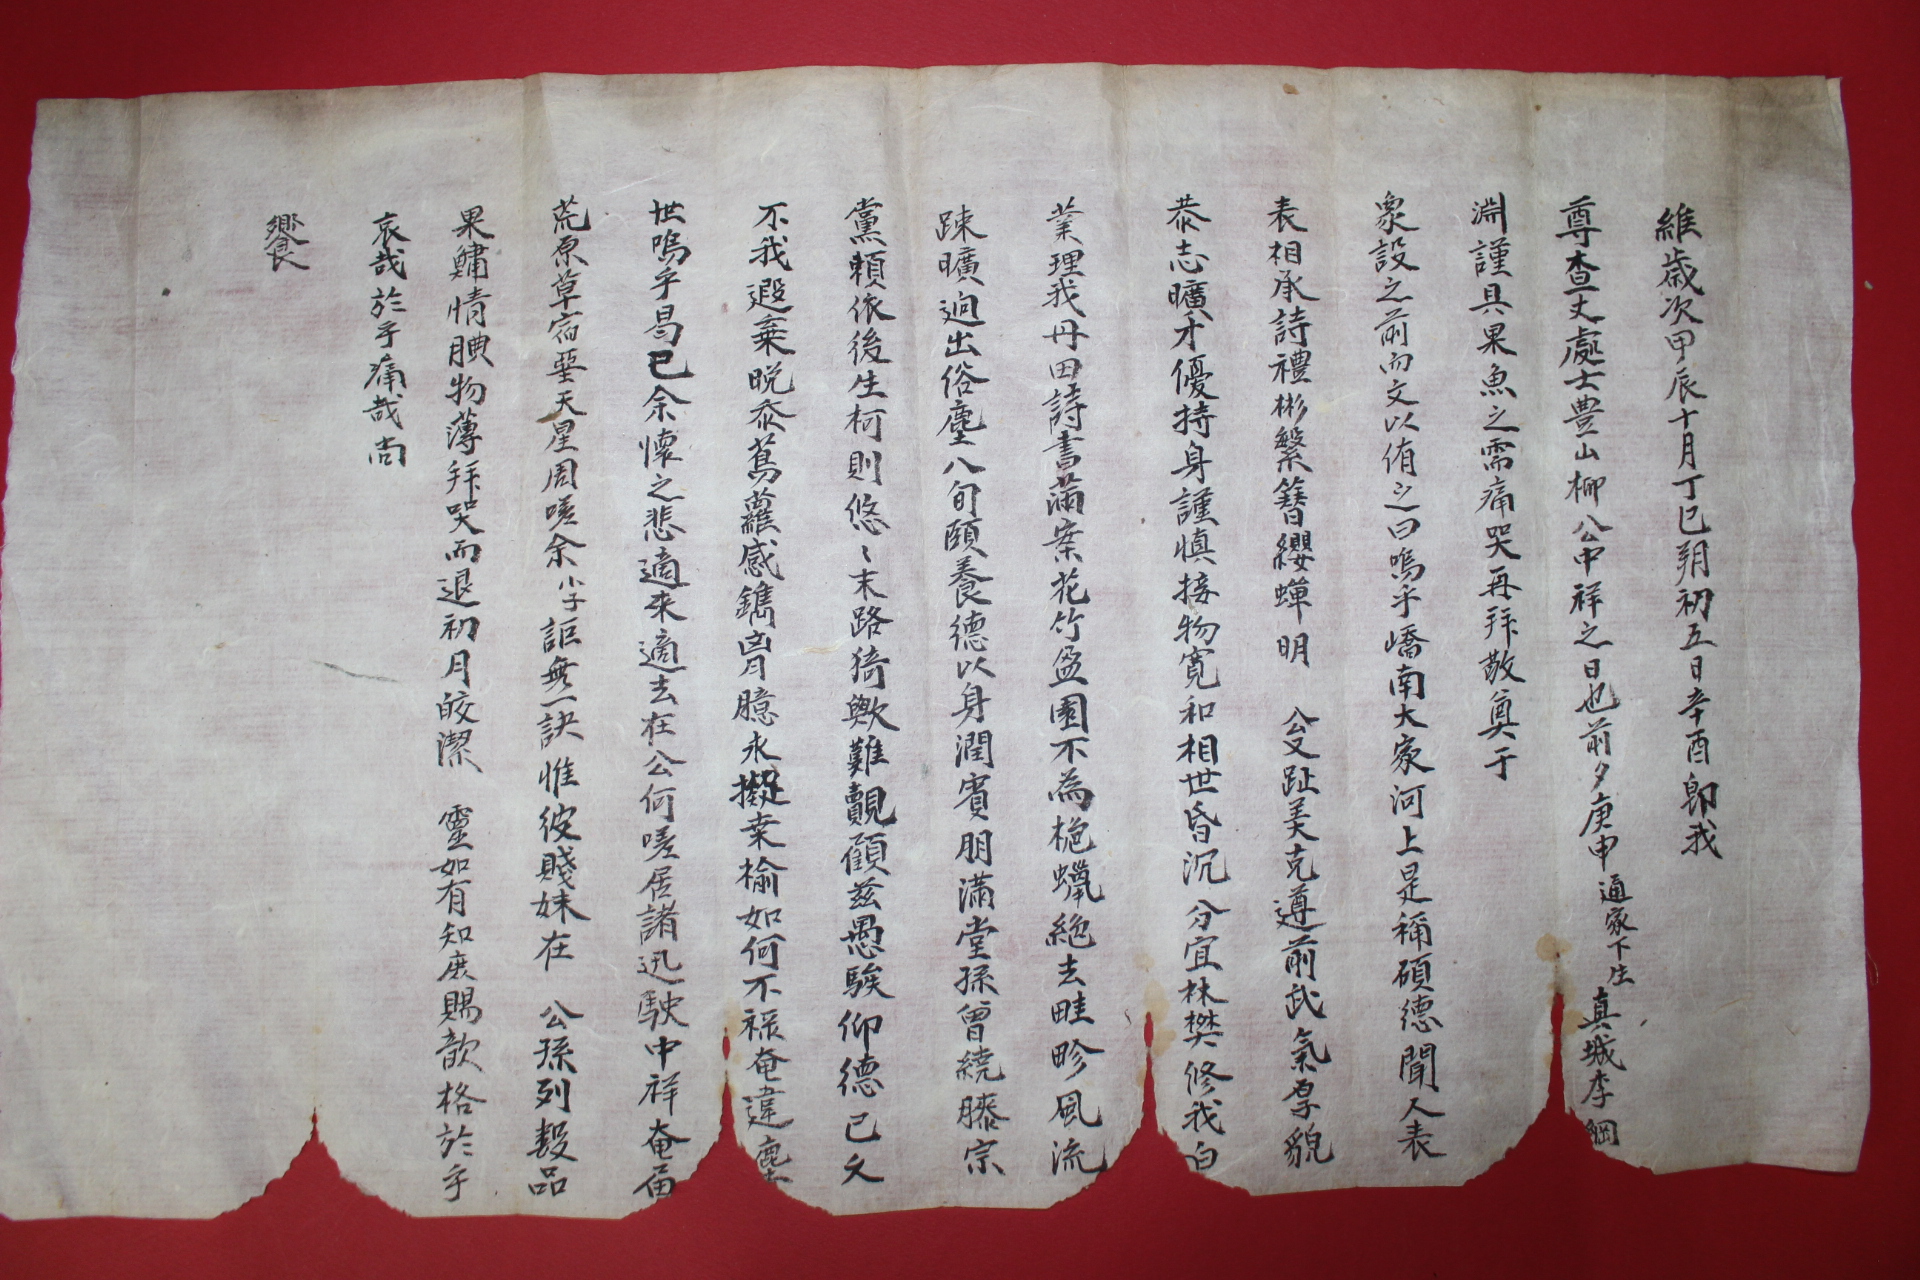 維歲次甲辰十月丁巳朔初五日辛酉卽我
尊查丈處士豊山柳公中祥之日也前夕庚申通家下生真城李綱
淵謹具果魚之需痛哭再拜敬奠于
象設之前而文以侑之曰嗚乎嶠南大家河上是稱碩德聞人表
表相承詩禮彬繁簪纓蟬明 公趾美克遵前武氣厚貌
恭志曠才優持身謹慎接物寬和相世昏沉分宜林樊修我白
業理我丹田詩書滿案花竹盈園不為梔蠟絶去畦畛風流
踈曠逈出俗塵八旬頤養德以身潤賓朋滿堂孫曾繞膝宗
黨賴依後生柯則悠〻末路猗歟難覿顧茲愚騃仰德已久
不我遐棄晚忝蔦蘿感鐫胷臆永擬桑榆如何不祿奄違塵
世嗚乎曷已余懷之悲適来適去在公何嗟居諸迅駛中祥奄届
荒原草宿堊天星周嗟余小子詎無一訣惟彼賤妹在 公孫列設品
果鱐情腆物薄拜哭而退初月皎潔 靈如有知庶賜歆格於乎
哀哉於乎痛哉尚
饗